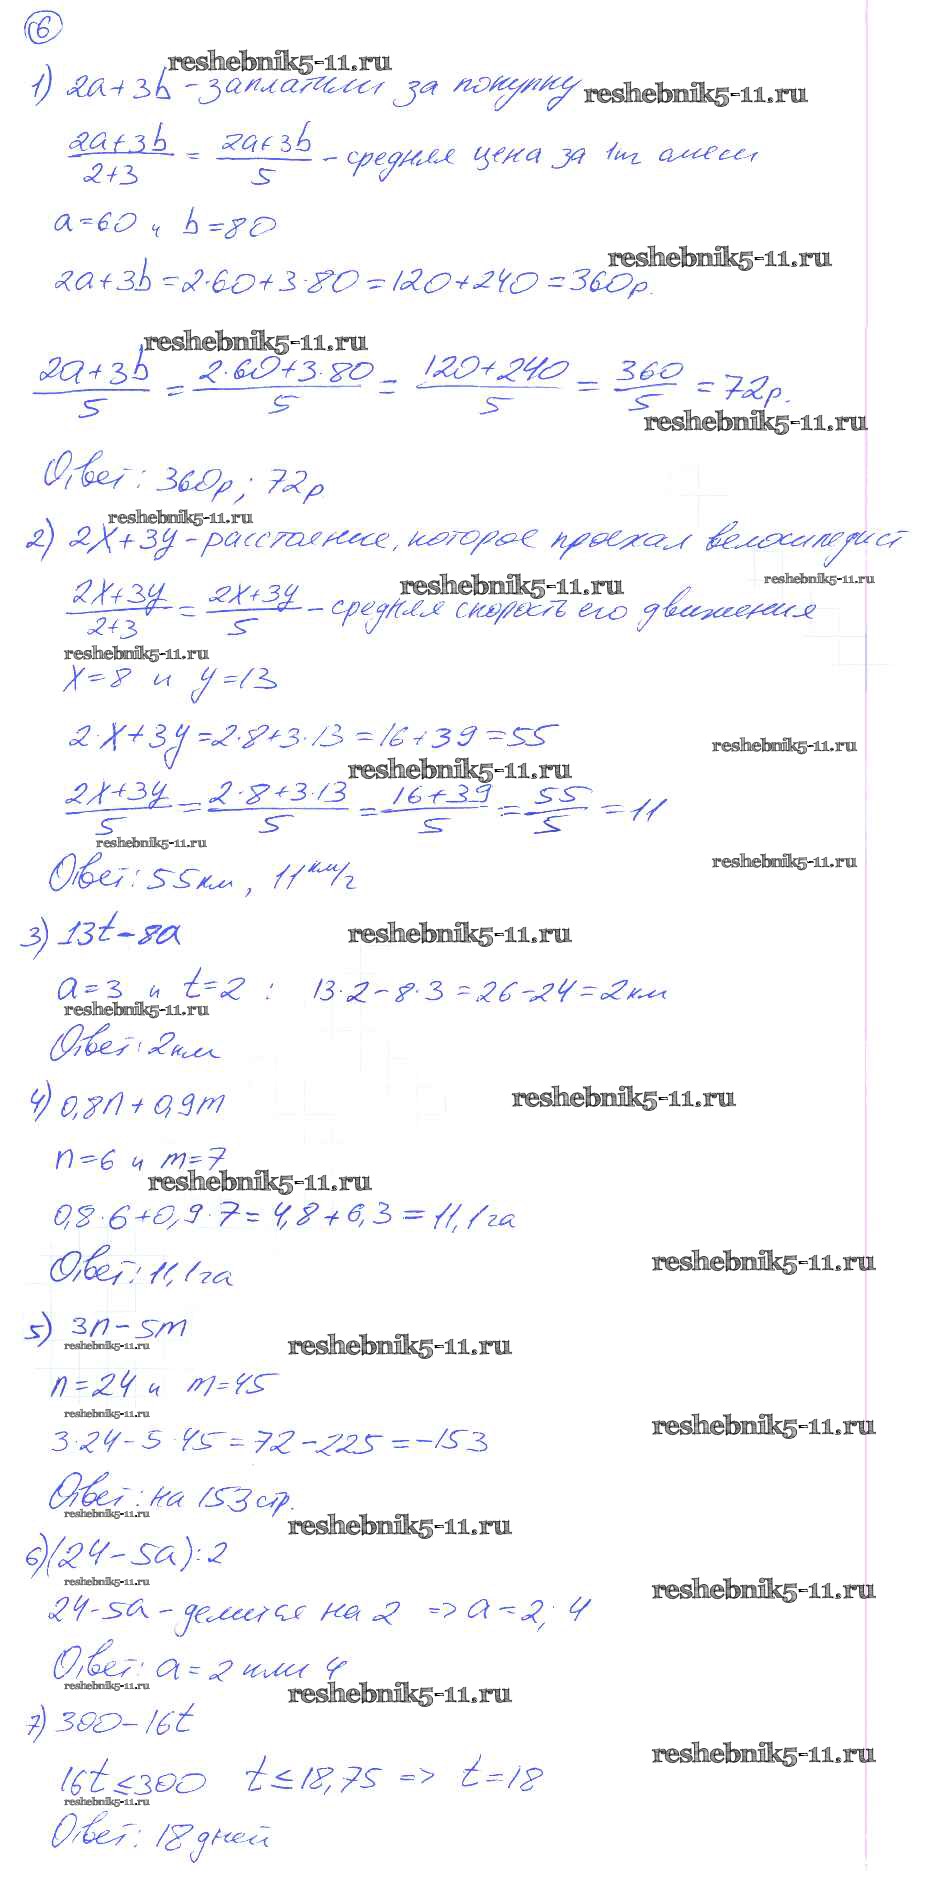 6
reshebnik5-11.ru
1) 2a+3b - заплатили за покупку
reshebnik5-11.ru
(2a+3b)/(2+3) = (2a+3b)/5 - средняя цена за 1
a=60 и b=80
reshebnik5-11.ru
2a+3b=2·60+3·80=120+240=360р.
reshebnik5-11.ru
(2a+3b)/5 = (2·60+3·80)/5 = (120+240)/5 = 360/5 = 72р.
reshebnik5-11.ru
Ответ: 360р; 72р
reshebnik5-11.ru
2) 2x+3y - расстояние, которое проехал велосипедист
reshebnik5-11.ru
reshebnik5-11.ru
(2x+3y)/(2+3) = (2x+3y)/5 - средняя скорость его движения
reshebnik5-11.ru
x=8 и y=13
2·x+3y=2·8+3·13=16+39=55
reshebnik5-11.ru
reshebnik5-11.ru
(2x+3y)/5 = (2·8+3·13)/5 = (16+39)/5 = 55/5 = 11
reshebnik5-11.ru
reshebnik5-11.ru
Ответ: 55км, 11 км/г
3) 13t-8a
reshebnik5-11.ru
a=3 и t=2 : 13·2-8·3=26-24=2км
reshebnik5-11.ru
Ответ: 2км
4) 0,8n+0,9m
reshebnik5-11.ru
n=6 и m=7
reshebnik5-11.ru
0,8·6+0,9·7=4,8+6,3=11,1га
reshebnik5-11.ru
Ответ: 11,1га
5) 3n-5m
reshebnik5-11.ru
reshebnik5-11.ru
n=24 и m=45
reshebnik5-11.ru
reshebnik5-11.ru
3·24-5·45=72-225=-153
Ответ: на 153стр.
reshebnik5-11.ru
reshebnik5-11.ru
6)(24-5a):2
reshebnik5-11.ru
reshebnik5-11.ru
24-5a - делится на 2 => a=2; 4
Ответ: a=2 или 4
reshebnik5-11.ru
reshebnik5-11.ru
7) 300-16t
reshebnik5-11.ru
16t≤300 t≤18,75 => t=18
reshebnik5-11.ru
Ответ: 18дней